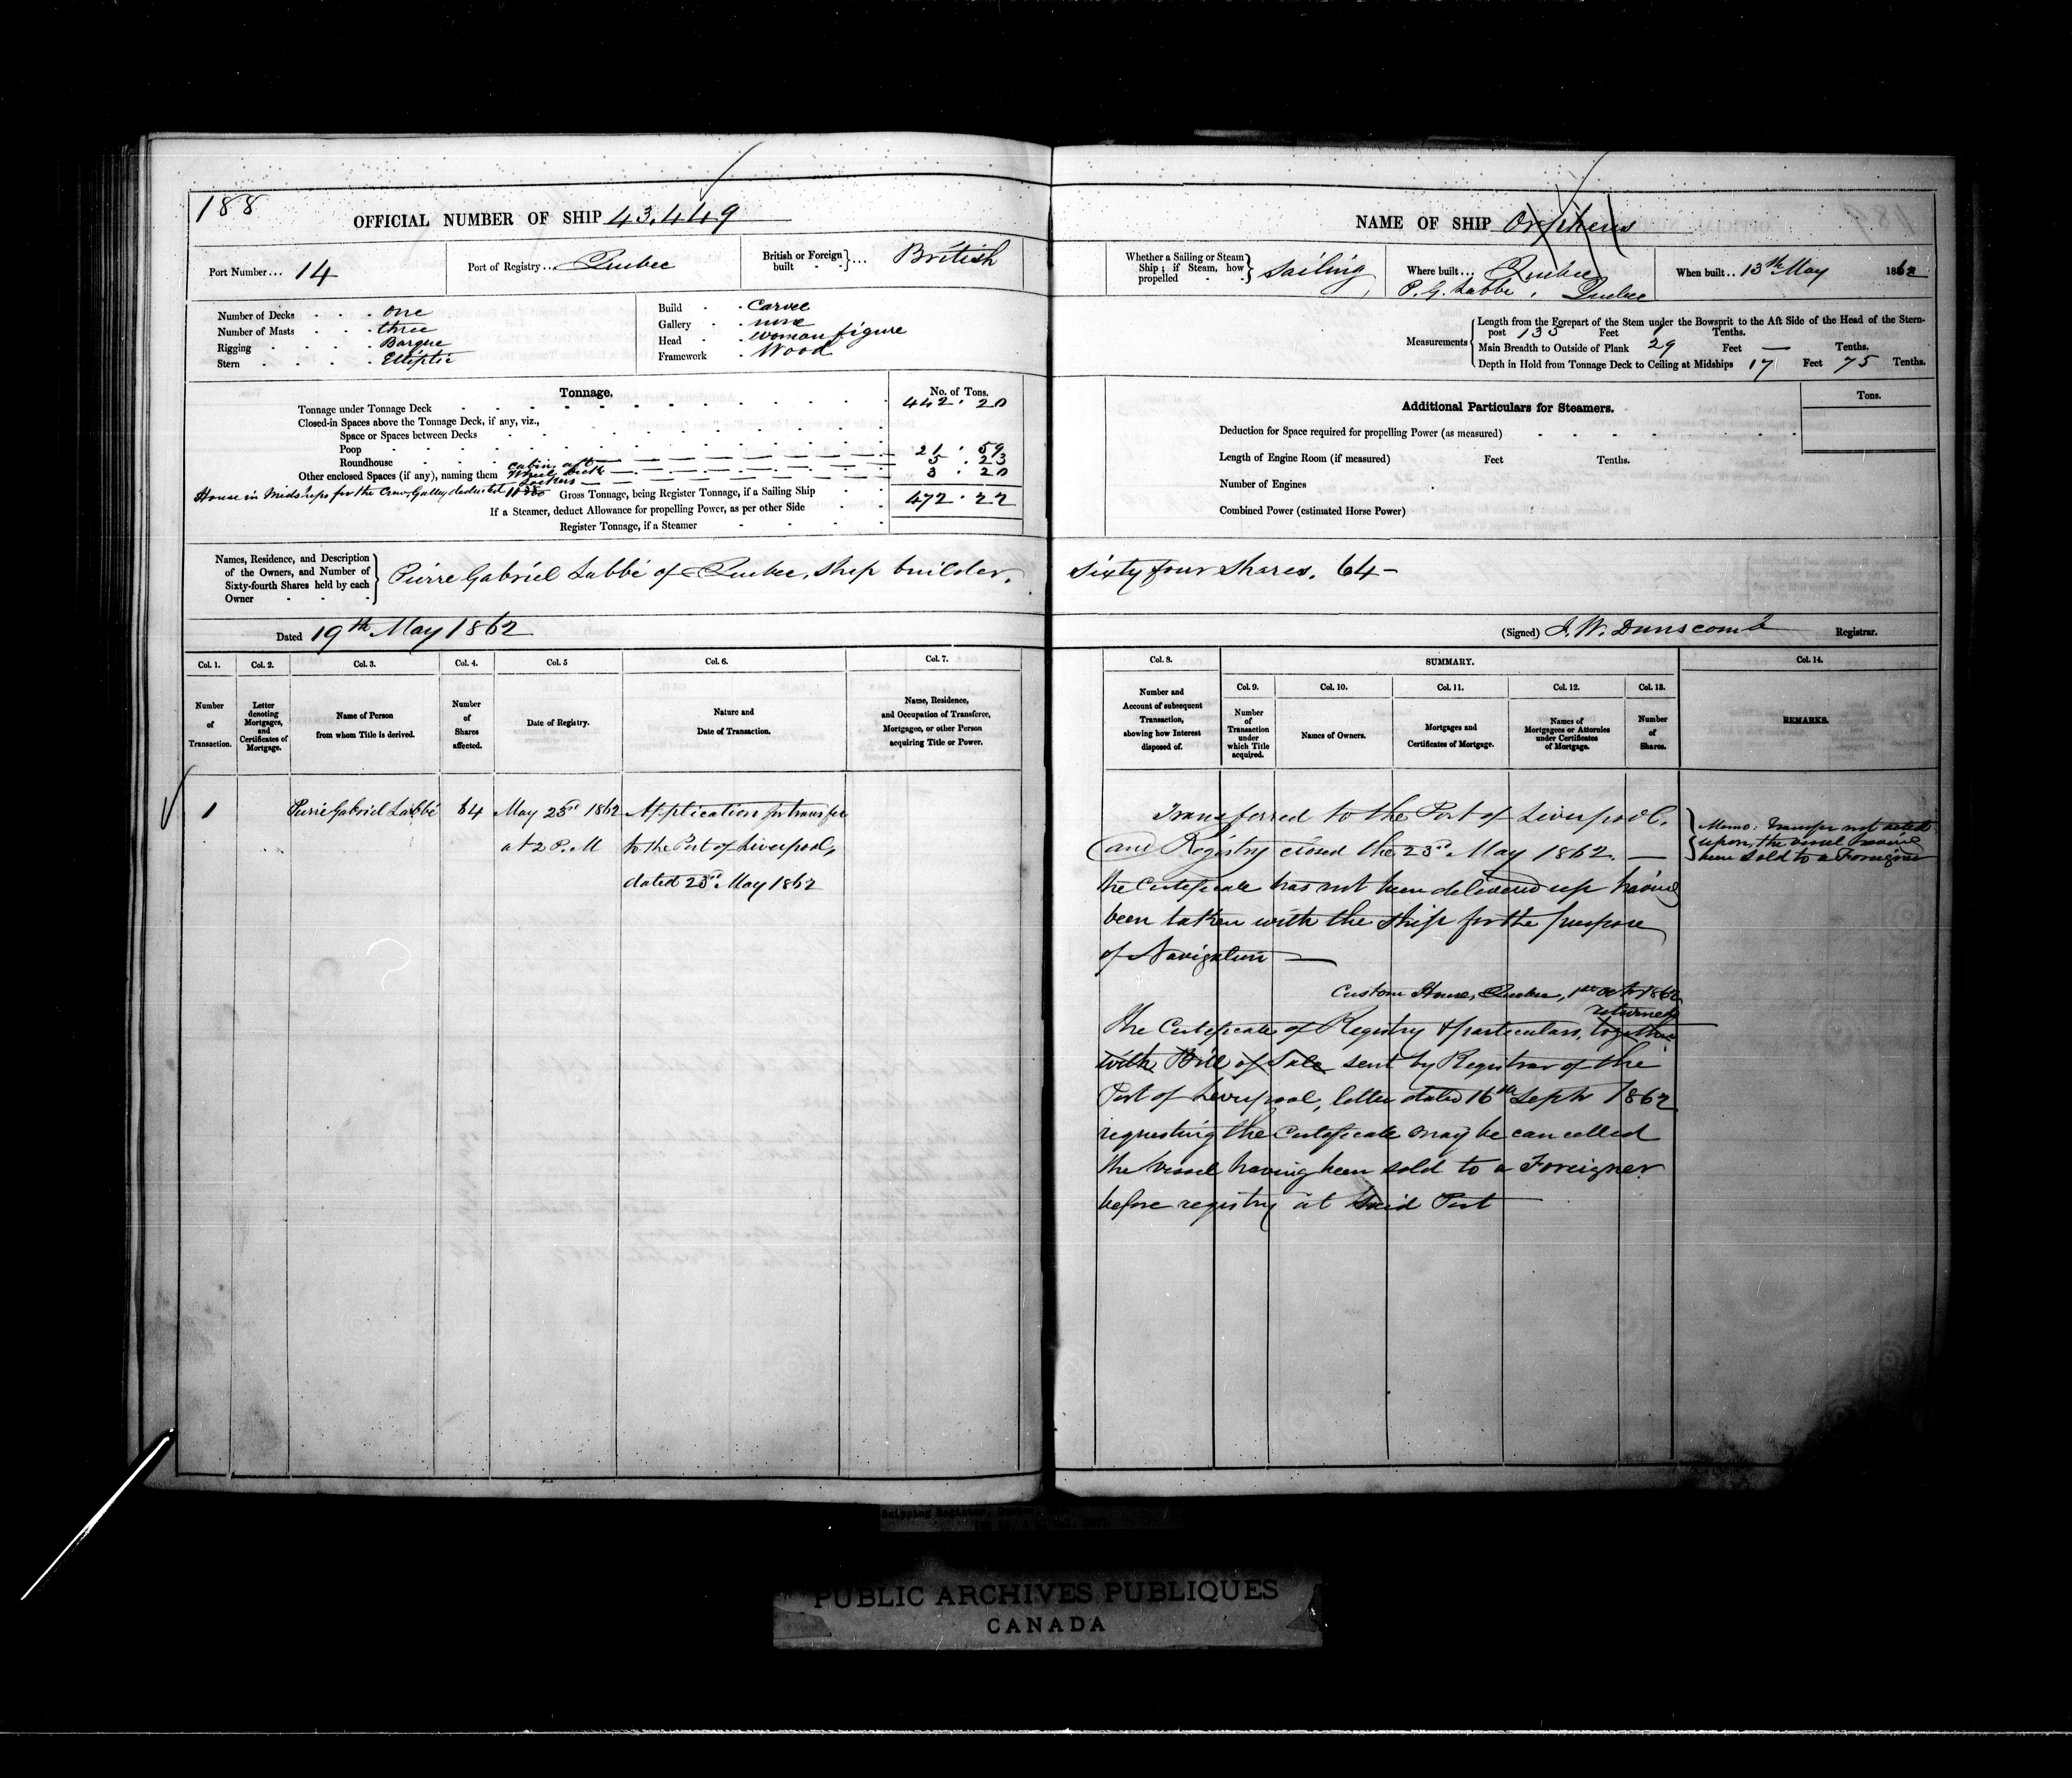 188
OFFICIAL NUMBER OF SHIP 43,449
Port Number... 14
Port of Registry... Quebec
British or Foreign built } ... British
Number of Decks - - - one
Number of Masts - - - three
Rigging - - - Barque
Stern - - - Elliptic
Build - - Carvel
Gallery - - none
Head - - woman figure
Framework - Wood
Tonnage.
No. of Tons.
Tonnage under Tonnage Deck 442.20
Closed-in Spaces above the Tonnage Deck, if any, viz.,
Space or Spaces between Decks
Poop
Roundhouse cabin aft 21.59
Other enclosed Spaces (if any), naming them Wheel Deck 5.23
Lockers 3.20
House in Midships for the Crew, Galley deducted
Gross Tonnage, being Register Tonnage, if a Sailing Ship 472.22
If a Steamer, deduct Allowance for propelling Power, as per other Side
Register Tonnage, if a Steamer
Names, Residence, and Description of the Owners, and Number of Sixty-fourth Shares held by each Owner } Pierre Gabriel Labbé of Quebec, ship builder,
Dated 19th May 1862
Col. 1. Col. 2. Col. 3. Col. 4. Col. 5 Col. 6. Col. 7.
Number of Transaction.
Letter denoting Mortgages, and Certificates of Mortgage.
Name of Person from whom Title is derived.
Number of Shares affected.
Date of Registry.
Nature and Date of Transaction.
Name, Residence, and Occupation of Transferee, Mortgagee, or other Person acquiring Title or Power.
1 Pierre Gabriel Labbé 64 May 23rd 1862 Application for transfer
at 2 P.M to the Port of Liverpool,
dated 23rd May 1862
NAME OF SHIP Orpheus
Whether a Sailing or Steam Ship; if Steam, how propelled } Sailing
Where built... Quebec
P. G. Labbé, Quebec
When built.. 13th May 1862
Measurements
Length from the Forepart of the Stem under the Bowsprit to the Aft Side of the Head of the Stern-
post 135 Feet Tenths.
Main Breadth to Outside of Plank 29 Feet — Tenths.
Depth in Hold from Tonnage Deck to Ceiling at Midships 17 Feet 75 Tenths.
Additional Particulars for Steamers.
Tons.
Deduction for Space required for propelling Power (as measured)
Length of Engine Room (if measured) Feet Tenths.
Number of Engines
Combined Power (estimated Horse Power)
Sixty four shares. 64 –
(Signed) J. W. Dunscomb Registrar.
Col. 8. SUMMARY. Col. 14.
Col. 9. Col. 10. Col. 11. Col. 12. Col. 13.
Number and Account of subsequent Transaction, showing how Interest disposed of.
Number of Transaction under which Title acquired.
Names of Owners.
Mortgages and Certificates of Mortgage.
Names of Mortgagees or Attornies under Certificates of Mortgage.
Number of Shares.
REMARKS.
Transferred to the Port of Liverpool,
and Registry closed the 23rd May 1862. —
the Certificate has not been delivered up having
been taken with the ship for the purpose
of Navigation —
Memo: Transfer not acted
upon, the vessel having
been sold to a Foreigner
Custom House, Quebec, 1st Octr 1862
returned
The Certificate of Registry & particulars, together
with Bill of Sale sent by Registrar of the
Port of Liverpool, letter dated 16th Septr 1862
requesting the Certificate may be cancelled
the Vessel having been sold to a Foreigner
before registry at said Port
PUBLIC ARCHIVES PUBLIQUES
CANADA